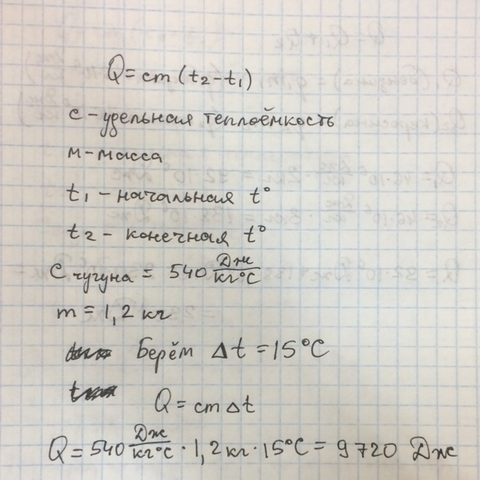 Q = cm (t₂ - t₁)
c - удельная теплоёмкость
м - масса
t₁ - начальная t°
t₂ - конечная t°
C чугуна = 540 Дж/кг°C
m = 1,2 кг
Берём Δt = 15°C
Q = cmΔt
Q = 540 Дж/кг°C · 1,2 кг · 15°C = 9720 Дж